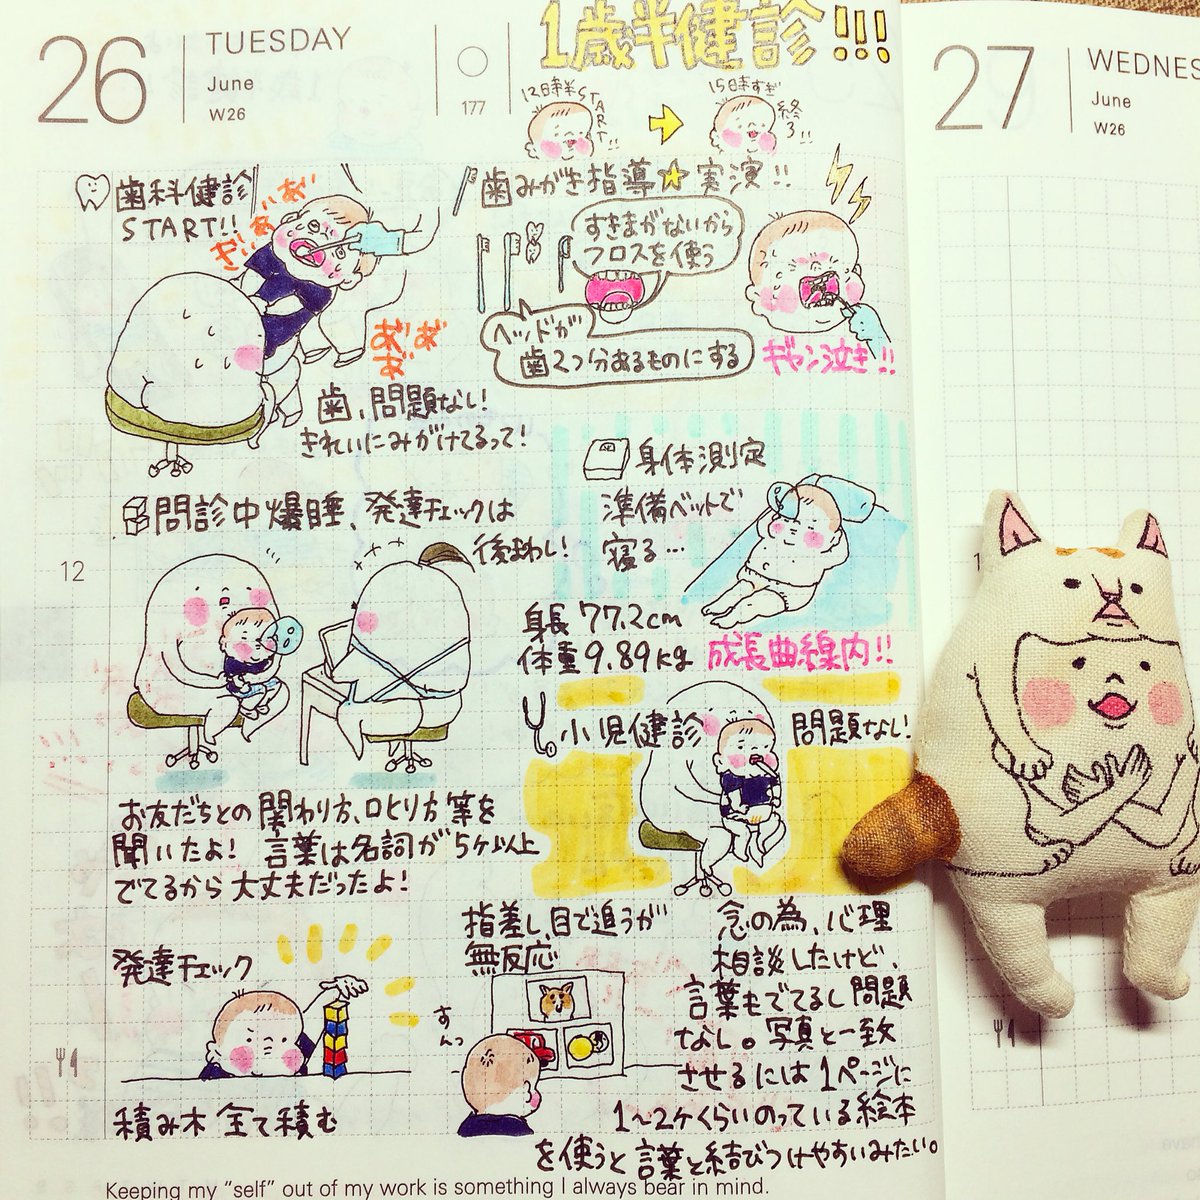 26
TUESDAY
June
W26
177
1歳半健診!!!
12時半START!!
15時すぎ終了!!
27
WEDNES
June
W26
歯科健診
START!!
ぎぃあぃあぁ
あ゛あ゛あ゛
歯、問題なし!
きれいにみがけてるって!
歯みがき指導☆実演!!
すきまがないから
フロスを使う
ヘッドが
歯2つ分あるものにする
ギャン泣き!!
問診中爆睡、発達チェックは
後まわし!
身体測定
準備ベットで
寝る…
12
身長77.2cm
体重9.89kg 成長曲線内!!
小児健診 問題なし!
お友だちとの関わり方、叱り方等を
聞いたよ! 言葉は名詞が5ヶ以上
でてるから大丈夫だったよ!
発達チェック
積み木全て積む
指差し、目で追うが
無反応
すんっ
念の為、心理
相談したけど、
言葉もでてるし問題
なし。写真と一致
させるには1ページに
1〜2ヶくらいのっている絵本
を使うと言葉と結びつけやすいみたい。
Keeping my “self” out of my work is something I always bear in mind.